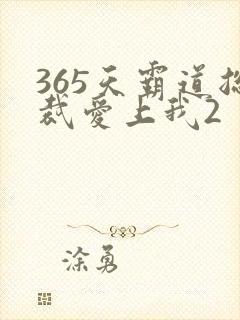 365天霸道总
裁爱上我2
涂勇